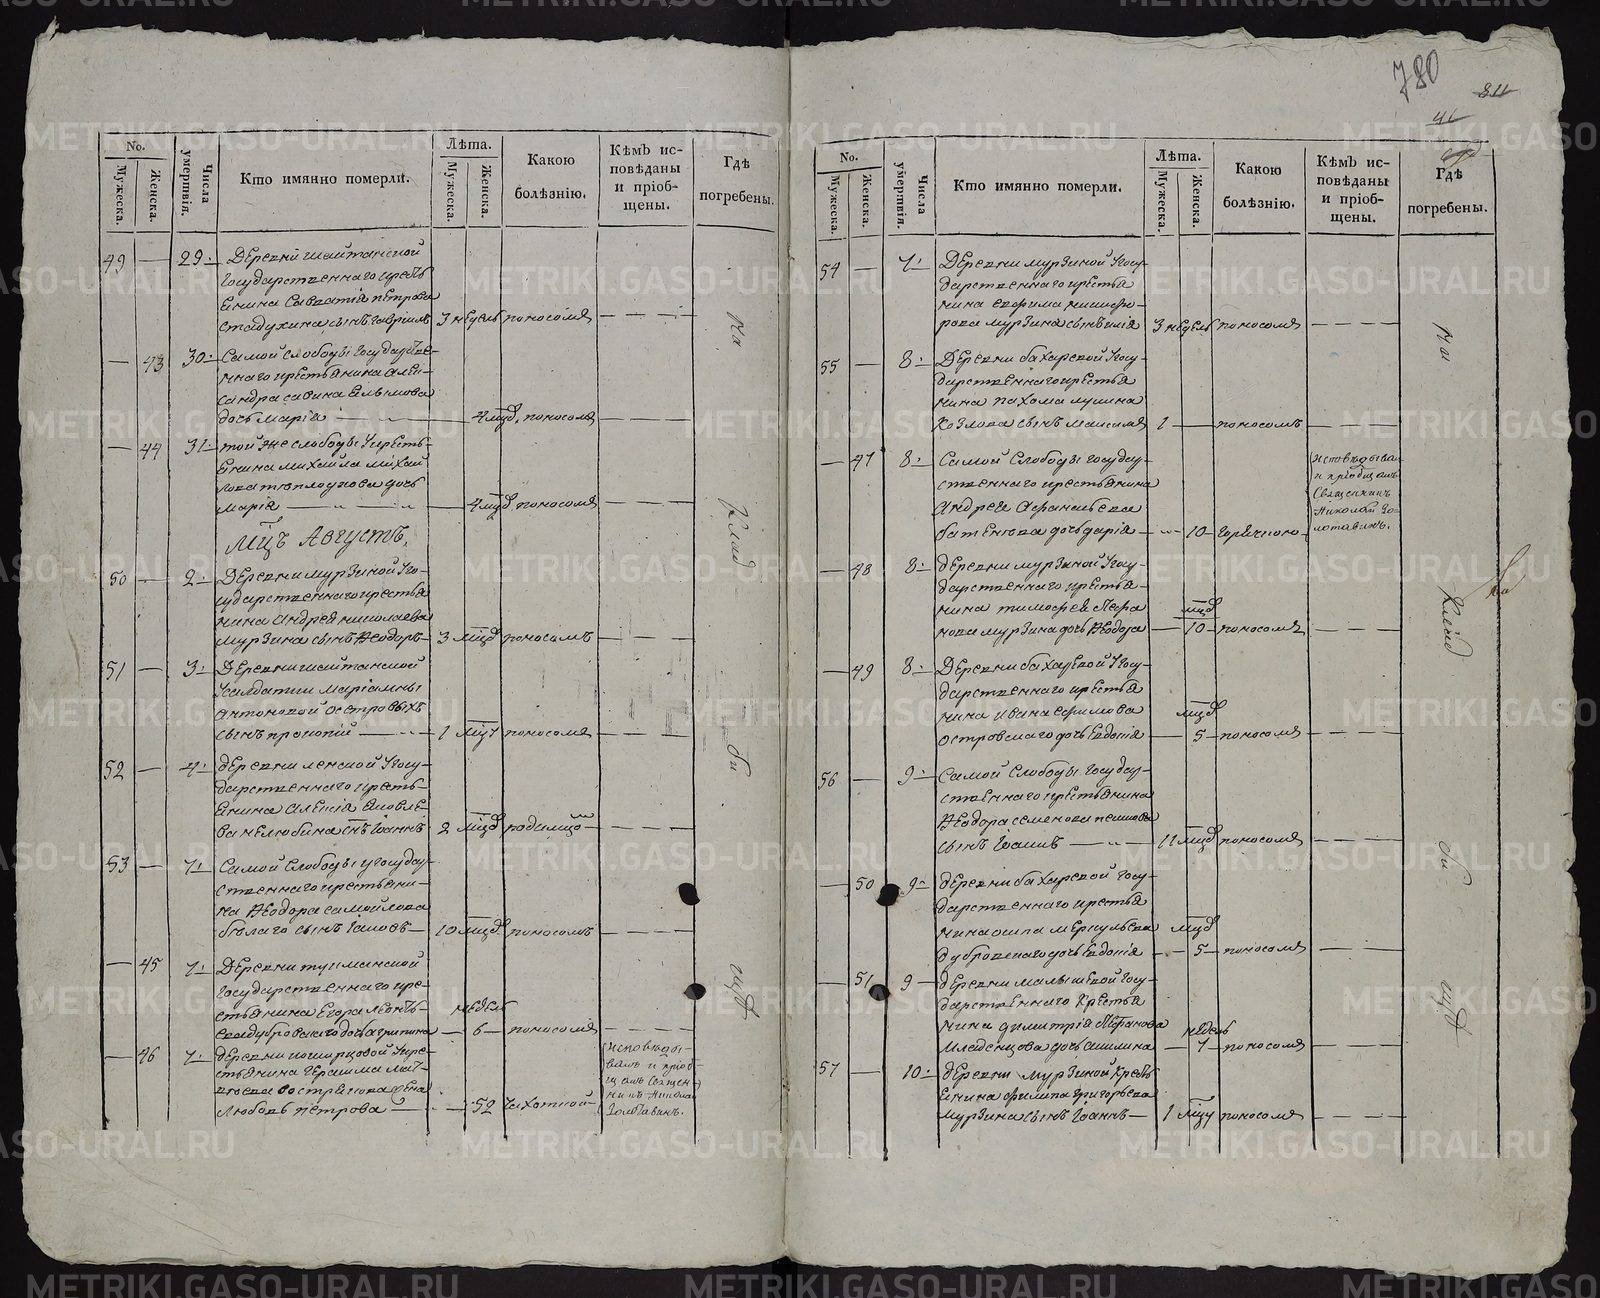 780
811
No.
Мужеска.
Женска.
Числа умертвія.
Кто имянно померли.
Лѣта.
Мужеска.
Женска.
Какою болѣзнію.
Кѣмъ исповѣданы и пріобщены.
Гдѣ погребены.
49 — 29.
Деревни шайтанской
государственнаго кресть
янина Савватія петрова
стадухина сынъ гавріилъ 3 недель поносомъ
— 43 30.
Самой слободы государстве
ннаго крестьянина алек
сандра савина
дочь марія 4 мцд. поносомъ
— 44 31.
той же слободы кресть
янина михайла михай
лова дочь
марія 4 мцд поносомъ
Мцъ Августъ.
50 — 2.
Деревни мурзиной го
сударственнаго крестья
нина андрея николаева
мурзина сынъ Ѳеодоръ 3 мцд поносомъ
51 — 3.
Деревни шайтанской
салдатки маріамны
антоновой островыхъ
сынъ прокопій 1 мцъ поносомъ
52 — 4.
деревни ленской госу
дарственнаго кресть
янина алексія яковле
ва нелюбина снъ Іоаннъ 2 мцд
53 — 7.
Самой слободы государ
ственнаго крестьяни
на Ѳеодора самойлова
бѣлаго сынъ Іаковъ 10 мцд поносомъ
— 45 7.
Деревни
государственнаго кре
стьянина Егора леонть
ева дубровскаго дочь агрипина 6 недель поносомъ
— 46 7.
деревни кре
стьянина Герасима мат
веева вострякова жена
любовь петрова 52 чахоткой
исповѣды
валъ и пріоб
щалъ священ
никъ Никола
Золотавинъ.
На
клад
би
щѣ
No.
Мужеска.
Женска.
Числа умертвія.
Кто имянно померли.
Лѣта.
Мужеска.
Женска.
Какою болѣзнію.
Кѣмъ исповѣданы и пріобщены.
Гдѣ погребены.
54 — 7.
Деревни мурзиной госу
дарственнаго крестья
нина ефима никифо
рова мурзина сынъ илія 3 недель поносомъ
55 — 8.
Деревни бахаревой госу
дарственнаго крестья
нина пахома лукина
козлова сынъ максимъ 1 — поносомъ
— 47 8.
Самой слободы государ
ственнаго крестьянина
Андрея Афанасьева
батенкова дочь дарія 10 горячкою
исповѣдыва
и пріобщалъ
Священникъ
Николай Зо
лотавинъ.
— 48 8.
деревни мурзиной госу
дарственнаго крестья
нина тимофея
мурзина дочь Ѳеодора 10 мцд поносомъ
— 49 8.
Деревни бахаревой госу
дарственнаго крестья
нина ивана ефимова
островскаго дочь евдокія 5 мцд поносомъ
56 — 9.
Самой слободы государ
ственнаго крестьянина
Ѳеодора семенова
сынъ Іоакимъ 11 мцд поносомъ
— 50 9.
деревни бахаревой госу
дарственнаго крестья
нина осипа меркульева
дубровскаго дочь евдокія 5 мцд поносомъ
— 51 9
деревни малышевой госу
дарственнаго крестья
нина димитрія
младенцова дочь акилина 7 недель поносомъ
57 — 10.
деревни мурзиной кресть
янина филипа григорьева
мурзина сынъ Іоаннъ 1 мцъ поносомъ
На
клад
би
щѣ
METRIKI.GASO-URAL.RU